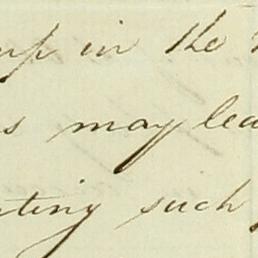 up in the
s may lea
ting such